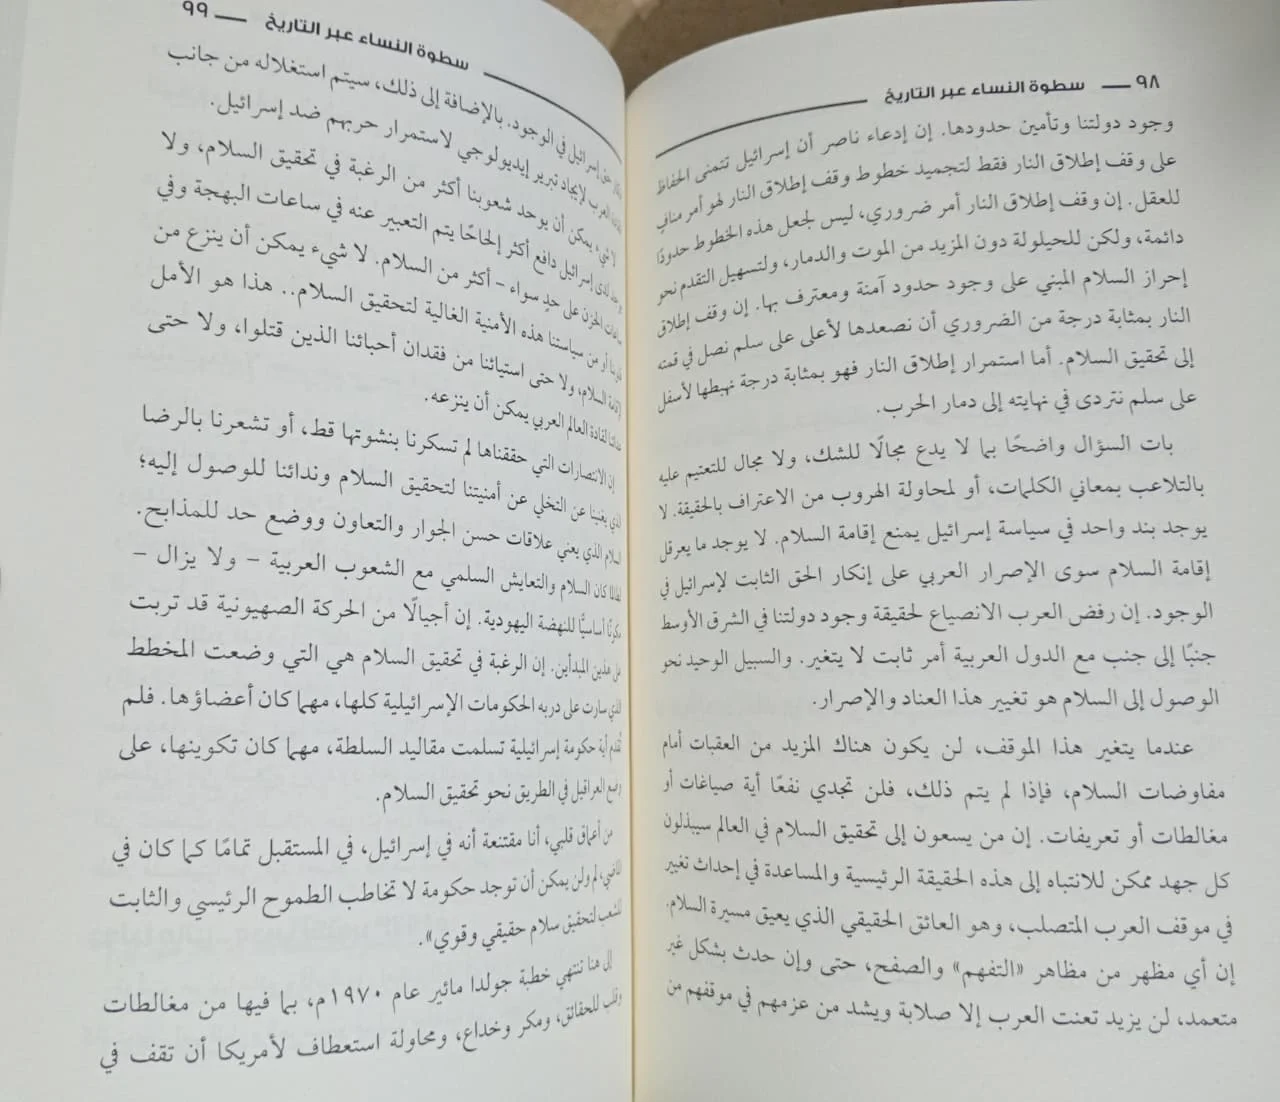 ٩٨ — سطوة النساء عبر التاريخ
وجود دولتنا وتأمين حدودها. إن إدعاء ناصر أن إسرائيل تتمنى الحفاظ
على وقف إطلاق النار فقط لتجميد خطوط وقف إطلاق النار لهو أمر منافٍ
للعقل. إن وقف إطلاق النار أمر ضروري، ليس لجعل هذه الخطوط حدودًا
دائمة، ولكن للحيلولة دون المزيد من الموت والدمار، ولتسهيل التقدم نحو
إحراز السلام المبني على وجود حدود آمنة ومعترف بها. إن وقف إطلاق
النار بمثابة درجة من الضروري أن نصعدها لأعلى على سلم نصل في قمته
إلى تحقيق السلام. أما استمرار إطلاق النار فهو بمثابة درجة نهبطها لأسفل
على سلم نتردى في نهايته إلى دمار الحرب.
بات السؤال واضحًا بما لا يدع مجالًا للشك، ولا مجال للتعتيم عليه
بالتلاعب بمعاني الكلمات، أو لمحاولة الهروب من الاعتراف بالحقيقة. لا
يوجد بند واحد في سياسة إسرائيل يمنع إقامة السلام. لا يوجد ما يعرقل
إقامة السلام سوى الإصرار العربي على إنكار الحق الثابت لإسرائيل في
الوجود. إن رفض العرب الانصياع لحقيقة وجود دولتنا في الشرق الأوسط
جنبًا إلى جنب مع الدول العربية أمر ثابت لا يتغير. والسبيل الوحيد نحو
الوصول إلى السلام هو تغيير هذا العناد والإصرار.
عندما يتغير هذا الموقف، لن يكون هناك المزيد من العقبات أمام
مفاوضات السلام، فإذا لم يتم ذلك، فلن تجدي نفعًا أية صياغات أو
مغالطات أو تعريفات. إن من يسعون إلى تحقيق السلام في العالم سيبذلون
كل جهد ممكن للانتباه إلى هذه الحقيقة الرئيسية والمساعدة في إحداث تغيير
في موقف العرب المتصلب، وهو العائق الحقيقي الذي يعيق مسيرة السلام.
إن أي مظهر من مظاهر «التفهم» والصفح، حتى وإن حدث بشكل غير
متعمد، لن يزيد تعنت العرب إلا صلابة ويشد من عزمهم في موقفهم من
سطوة النساء عبر التاريخ — ٩٩
حق إسرائيل في الوجود. بالإضافة إلى ذلك، سيتم استغلاله من جانب
العرب لإيجاد تبرير إيديولوجي لاستمرار حربهم ضد إسرائيل.
لا شيء يمكن أن يوحد شعوبنا أكثر من الرغبة في تحقيق السلام، ولا
يوجد لدى إسرائيل دافع أكثر إلحاحًا يتم التعبير عنه في ساعات البهجة وفي
ساعات الحزن على حدٍ سواء – أكثر من السلام. لا شيء يمكن أن ينزع من
قلوبنا أو من سياستنا هذه الأمنية الغالية لتحقيق السلام.. هذا هو الأمل
لإقامة السلام، ولا حتى استيائنا من فقدان أحبائنا الذين قتلوا، ولا حتى
لقادة العالم العربي يمكن أن ينزعه.
إن الانتصارات التي حققناها لم تسكرنا بنشوتها قط، أو تشعرنا بالرضا
الذي يغنينا عن التخلي عن أمنيتنا لتحقيق السلام وندائنا للوصول إليه؛
السلام الذي يعني علاقات حسن الجوار والتعاون ووضع حد للمذابح.
لطالما كان السلام والتعايش السلمي مع الشعوب العربية – ولا يزال –
مكونًا أساسيًّا للنهضة اليهودية. إن أجيالًا من الحركة الصهيونية قد تربت
على هذين المبدأين. إن الرغبة في تحقيق السلام هي التي وضعت المخطط
الذي سارت على دربه الحكومات الإسرائيلية كلها، مهما كان أعضاؤها. فلم
تُقدم أية حكومة إسرائيلية تسلمت مقاليد السلطة، مهما كان تكوينها، على
وضع العراقيل في الطريق نحو تحقيق السلام.
من أعماق قلبي، أنا مقتنعة أنه في إسرائيل، في المستقبل تمامًا كما كان في
الماضي، لم ولن يمكن أن توجد حكومة لا تخاطب الطموح الرئيسي والثابت
للشعب لتحقيق سلام حقيقي وقوي».
إلى هنا تنتهي خطبة جولدا مائير عام ١٩٧٠م، بما فيها من مغالطات
وقلب للحقائق، ومكر وخداع، ومحاولة استعطاف لأمريكا أن تقف في